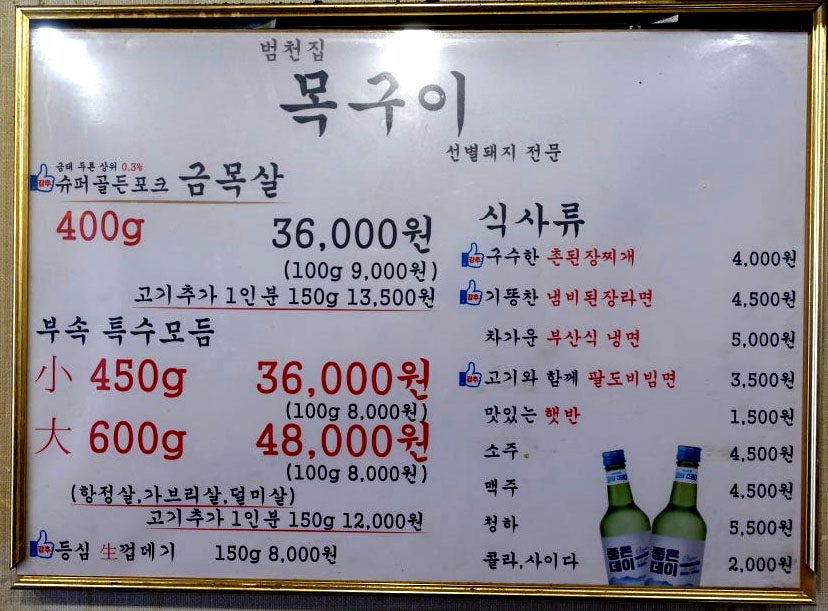 범천집
목구이
선별돼지 전문
금테 두른 상위 0.3%
강추 슈퍼골든포크 금목살
400g 36,000원
(100g 9,000원)
고기추가 1인분 150g 13,500원
부속 특수모듬
小 450g 36,000원
(100g 8,000원)
大 600g 48,000원
(100g 8,000원)
(항정살,가브리살,덜미살)
고기추가 1인분 150g 12,000원
강추 등심 生껍데기 150g 8,000원
식사류
강추 구수한 촌된장찌개 4,000원
강추 기똥찬 냄비된장라면 4,500원
차가운 부산식 냉면 5,000원
강추 고기와 함께 팔도비빔면 3,500원
맛있는 햇반 1,500원
소주 4,500원
맥주 4,500원
청하 5,500원
콜라,사이다 2,000원
좋은데이
좋은데이